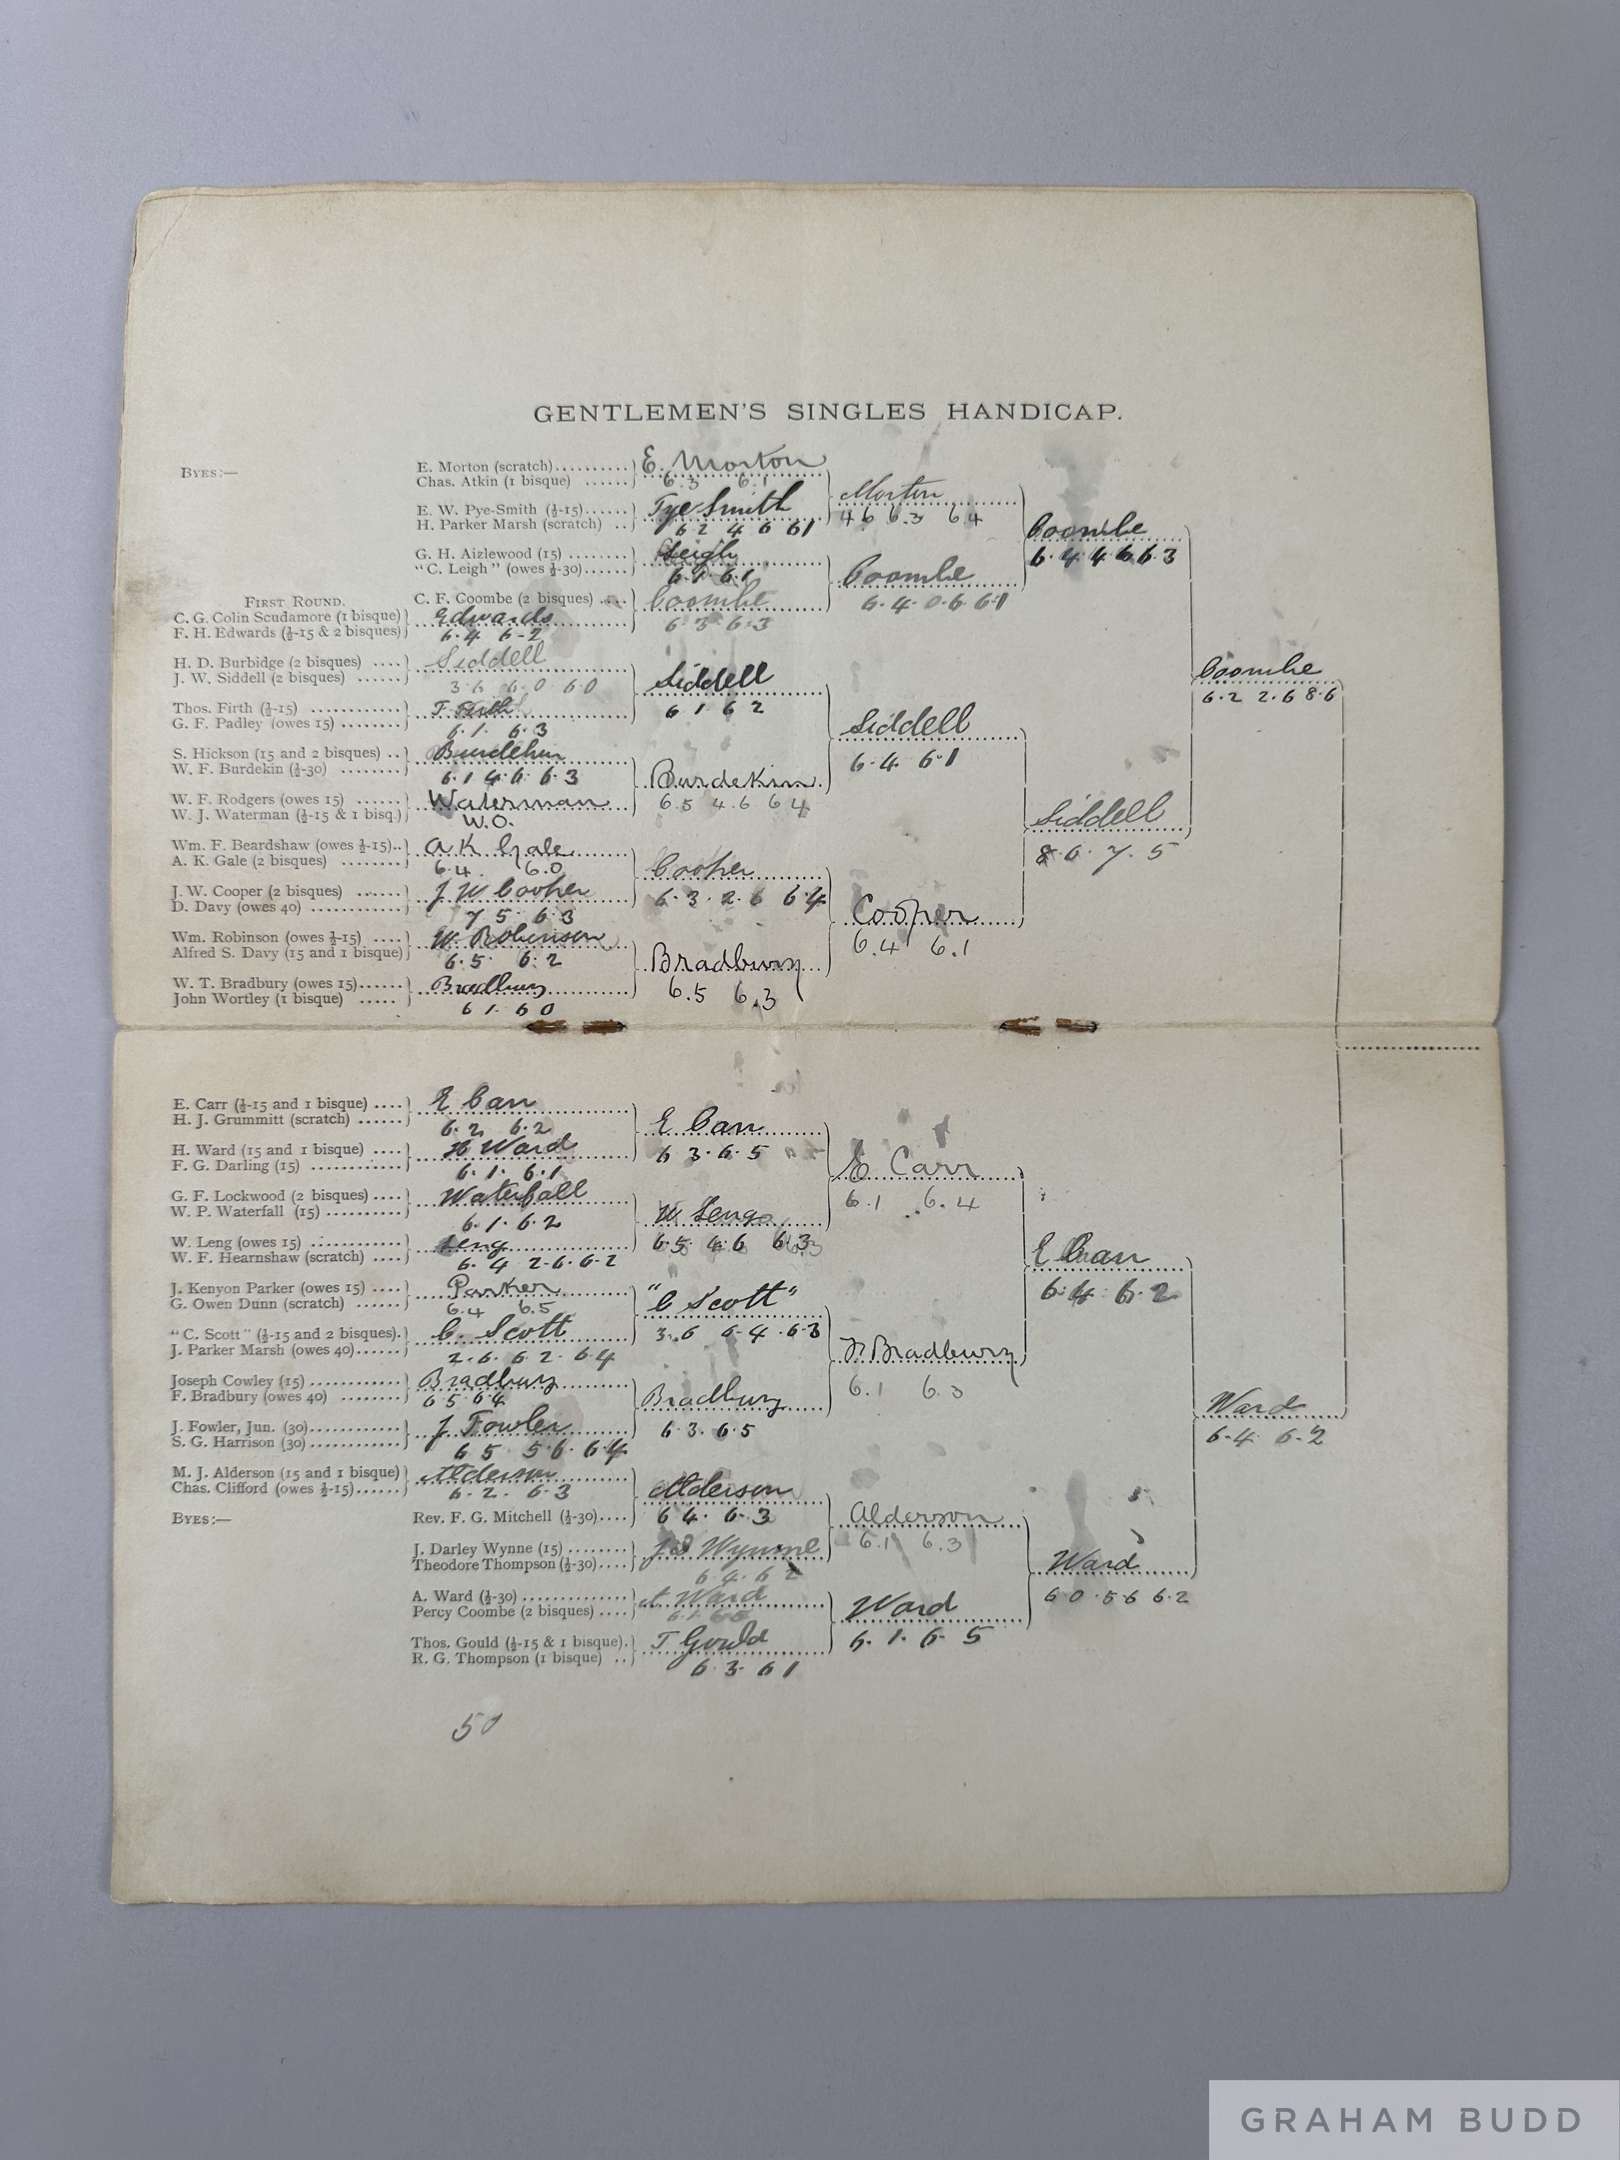 GENTLEMEN'S SINGLES HANDICAP.
BYES:—
E. Morton (scratch)..........
Chas. Atkin (1 bisque) ......
E. Morton
6.3 6.1
E. W. Pye-Smith (½-15)......
H. Parker Marsh (scratch) ..
Pye Smith
6 2 4 6 6 1
Morton
4 6 6.3 6.4
G. H. Aizlewood (15) ........
"C. Leigh" (owes ½-30)......
Leigh
6.1. 6.1
C. F. Coombe (2 bisques) ....
Coombe
6 3 6.3
Coombe
6.4 0.6 6.1
Coombe
6.4 4.6 6.3
FIRST ROUND.
C. G. Colin Scudamore (1 bisque)
F. H. Edwards (½-15 & 2 bisques)
Edwards
6.4 6-2
H. D. Burbidge (2 bisques) ....
J. W. Siddell (2 bisques) ......
Siddell
3.6 6.0 6.0
Thos. Firth (½-15) ............
G. F. Padley (owes 15) ........
T. Firth
6.1. 6.3
Siddell
6 1 6 2
S. Hickson (15 and 2 bisques) ..
W. F. Burdekin (½-30) ........
Burdekin
6.1 4.6 6.3
W. F. Rodgers (owes 15) ......
W. J. Waterman (½-15 & 1 bisq.)
Waterman
W.O.
Burdekin
6.5 4.6 6 4
Siddell
6.4 6.1
Wm. F. Beardshaw (owes ½-15)..
A. K. Gale (2 bisques) ........
A K Gale
6.4. 6.0
J. W. Cooper (2 bisques) ......
D. Davy (owes 40) ............
J W Cooper
7 5. 6.3
Cooper
6.3.2.6 6.4
Wm. Robinson (owes ½-15) ....
Alfred S. Davy (15 and 1 bisque)
W. Robinson
6.5 6.2
W. T. Bradbury (owes 15)......
John Wortley (1 bisque) .....
Bradbury
6 1. 6 0
Bradbury
6.5 6.3
Cooper
6.4 6.1
Siddell
8.6. 7. 5
Coombe
6.2 2.6 8.6
E. Carr (½-15 and 1 bisque) ....
H. J. Grummitt (scratch) ......
E Carr
6.2 6.2
H. Ward (15 and 1 bisque) ....
F. G. Darling (15) ............
H Ward
6.1. 6.1
E Carr
6 3.6.5
G. F. Lockwood (2 bisques) ....
W. P. Waterfall (15) ..........
Waterfall
6.1. 6.2
W. Leng (owes 15) ............
W. F. Hearnshaw (scratch) ....
Leng
6.4 2-6.6-2
W Leng
6.5 4.6 6.3
E Carr
6.1 6.4
J. Kenyon Parker (owes 15) ....
G. Owen Dunn (scratch) ......
Parker
6.4 6.5
"C. Scott" (½-15 and 2 bisques).
J. Parker Marsh (owes 40)......
C. Scott
2.6. 6 2. 6.4
"C Scott"
3.6 6.4.6.3
Joseph Cowley (15)............
F. Bradbury (owes 40) ........
Bradbury
6 5 6 4
J. Fowler, Jun. (30)............
S. G. Harrison (30)............
J Fowler
6 5 5.6. 6.4
Bradbury
6.3. 6.5
F Bradbury
6.1 6.3
E Carr
6.4 6.2
M. J. Alderson (15 and 1 bisque)
Chas. Clifford (owes ½-15)......
Alderson
6.2. 6.3
BYES:—
Rev. F. G. Mitchell (½-30)....
Alderson
6 4. 6.3
J. Darley Wynne (15) ........
Theodore Thompson (½-30)....
J D Wynne
6.4.6 2
Alderson
6.1 6.3
A. Ward (½-30) ..............
Percy Coombe (2 bisques) ....
A Ward
Thos. Gould (½-15 & 1 bisque).
R. G. Thompson (1 bisque) ..
T Gould
6 3. 6 1
Ward
6.1.6.5
Ward
6 0.5-6 6.2
Ward
6.4 6.2
50
GRAHAM BUDD